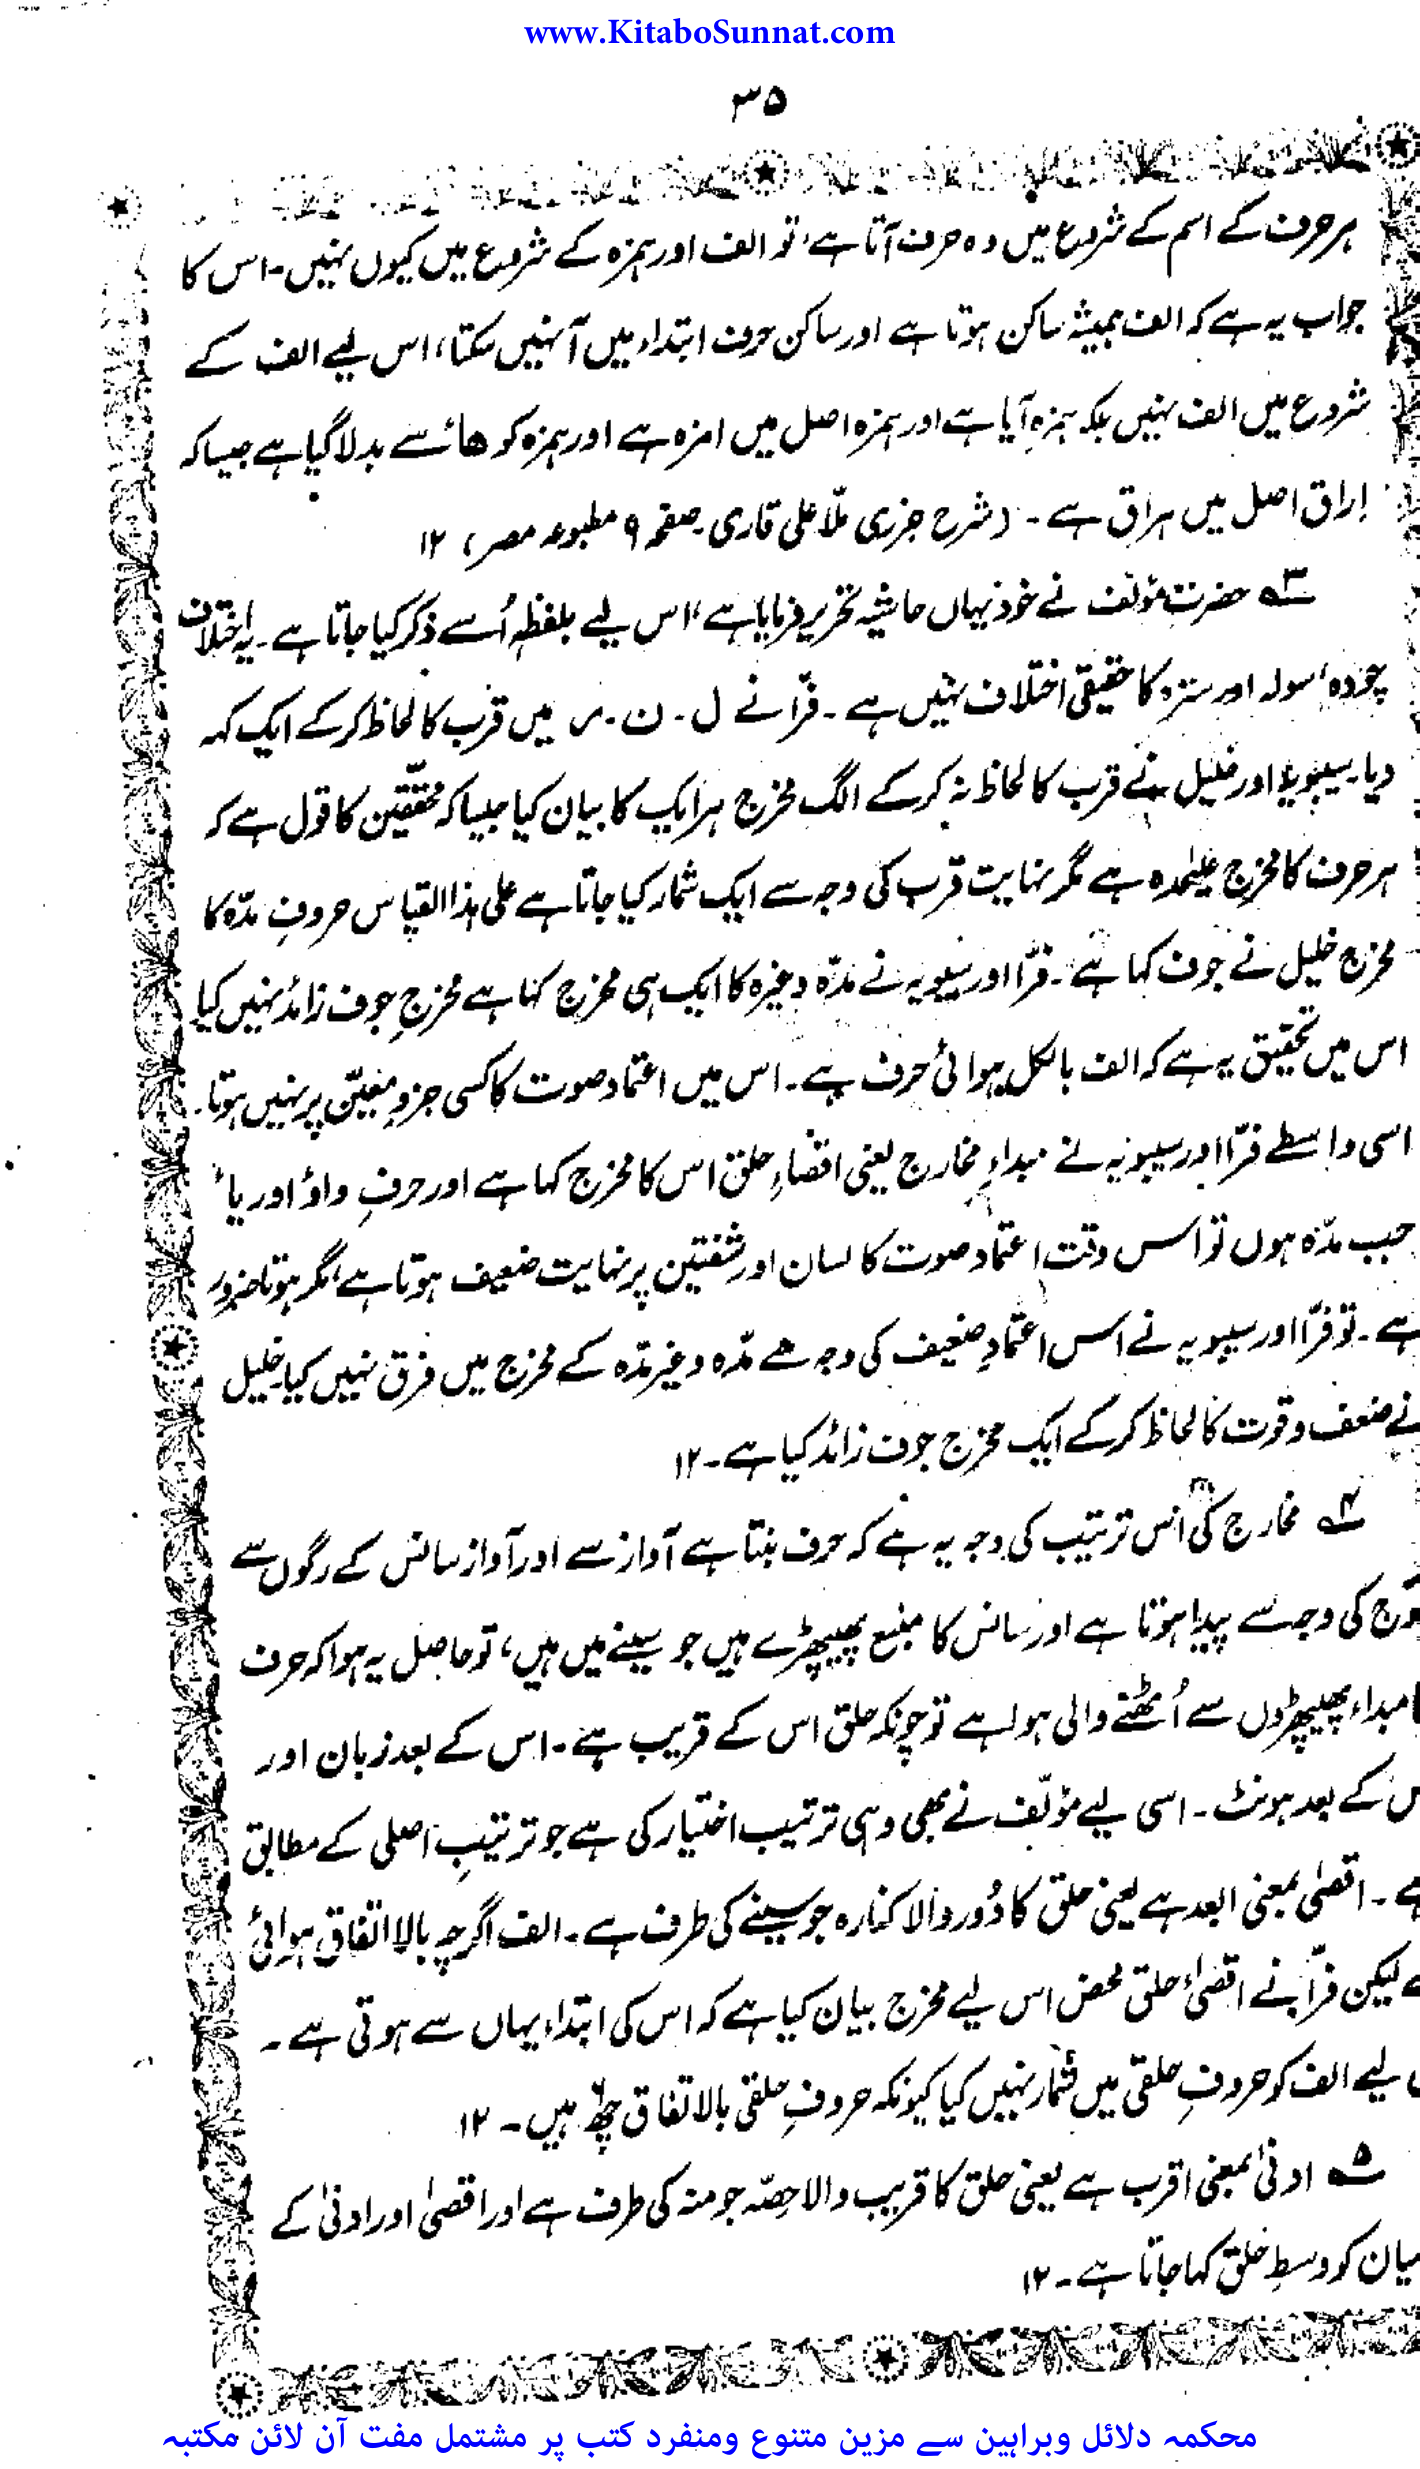 www.KitaboSunnat.com
۳۵
ہر حرف کے اسم کے شروع میں وہ حرف آتا ہے، تو الف اور ہمزہ کے شروع میں کیوں نہیں۔ اس کا
جواب یہ ہے کہ الف ہمیشہ ساکن ہوتا ہے اور ساکن حرف ابتداء میں آ نہیں سکتا، اس لیے الف کے
شروع میں الف نہیں بلکہ ہمزہ آیا ہے اور ہمزہ اصل میں امزہ ہے اور ہمزہ کو ھائ سے بدلا گیا ہے جیسا کہ
اراق اصل میں ہراق ہے۔ (شرح جزری ملّا علی قاری صفحہ ۹ مطبوعہ مصر) ۱۲
۳؎ حضرت مؤلف نے خود یہاں حاشیہ تحریر فرمایا ہے، اس لیے بلفظہٖ اُسے ذکر کیا جاتا ہے۔ یہ اختلاف
چودہ، سولہ اور سترہ کا حقیقی اختلاف نہیں ہے۔ فرّا نے ل۔ ن۔ ر میں قرب کا لحاظ کر کے ایک کہہ
دیا۔ سیبویہ اور خلیل نے قرب کا لحاظ نہ کر کے الگ مخرج ہر ایک کا بیان کیا جیسا کہ محققین کا قول ہے کہ
ہر حرف کا مخرج علیٰحدہ ہے مگر نہایت قرب کی وجہ سے ایک شمار کیا جاتا ہے علی ہذا القیاس حروفِ مدّہ کا
مخرج خلیل نے جوف کہا ہے۔ فرّا اور سیبویہ نے مدّہ وغیرہ کا ایک ہی مخرج کہا ہے مخرجِ جوف زائد نہیں کیا
اس میں تحقیق یہ ہے کہ الف بالکل ہوائی حرف ہے۔ اس میں اعتماد صوت کا کسی جزوِ معیّن پر نہیں ہوتا۔
اسی واسطے فرّا اور سیبویہ نے مبداءِ مخارج یعنی اقصاءِ حلق اس کا مخرج کہا ہے اور حرفِ واؤ اور یاء
جب مدّہ ہوں تو اس وقت اعتماد صوت کا لسان اور شفتین پر نہایت ضعیف ہوتا ہے، مگر ہوتا ضرور
ہے۔ تو فرّا اور سیبویہ نے اس اعتمادِ ضعیف کی وجہ سے مدّہ و غیر مدّہ کے مخرج میں فرق نہیں کیا۔ خلیل
نے ضعف و قوت کا لحاظ کر کے ایک مخرج جوف زائد کیا ہے۔ ۱۲
۴؎ مخارج کی اس ترتیب کی وجہ یہ ہے کہ حرف بنتا ہے آواز سے اور آواز سانس کے رگوں سے
کی وجہ سے پیدا ہوتا ہے اور سانس کا منبع پھیپھڑے ہیں جو سینے میں ہیں، تو حاصل یہ ہوا کہ حرف
مبداء پھیپھڑوں سے اُٹھنے والی ہوا ہے تو چونکہ حلق اس کے قریب ہے۔ اس کے بعد زبان اور
س کے بعد ہونٹ۔ اسی لیے مؤلّف نے بھی وہی ترتیب اختیار کی ہے جو ترتیبِ اصلی کے مطابق
ہے۔ اقصیٰ بمعنی ابعد ہے یعنی حلق کا دُور والا کنارہ جو سینے کی طرف ہے۔ الف اگرچہ بالاتفاق ہوائی
ہے لیکن فرّا نے اقصیٰ حلق محض اس لیے مخرج بیان کیا ہے کہ اس کی ابتداء یہاں سے ہوتی ہے۔
لیے الف کو حروفِ حلقی میں شمار نہیں کیا کیونکہ حروفِ حلقی بالاتفاق چھ ہیں۔ ۱۲
۵؎ ادنیٰ بمعنی اقرب ہے یعنی حلق کا قریب والا حصّہ جو منہ کی طرف ہے اور اقصیٰ اور ادنیٰ کے
میان کو وسطِ حلق کہا جاتا ہے۔ ۱۲
محکمہ دلائل وبراہین سے مزین متنوع ومنفرد کتب پر مشتمل مفت آن لائن مکتبہ